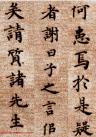 何患焉於是疑
者謝曰子之言信
矣請質諸先生